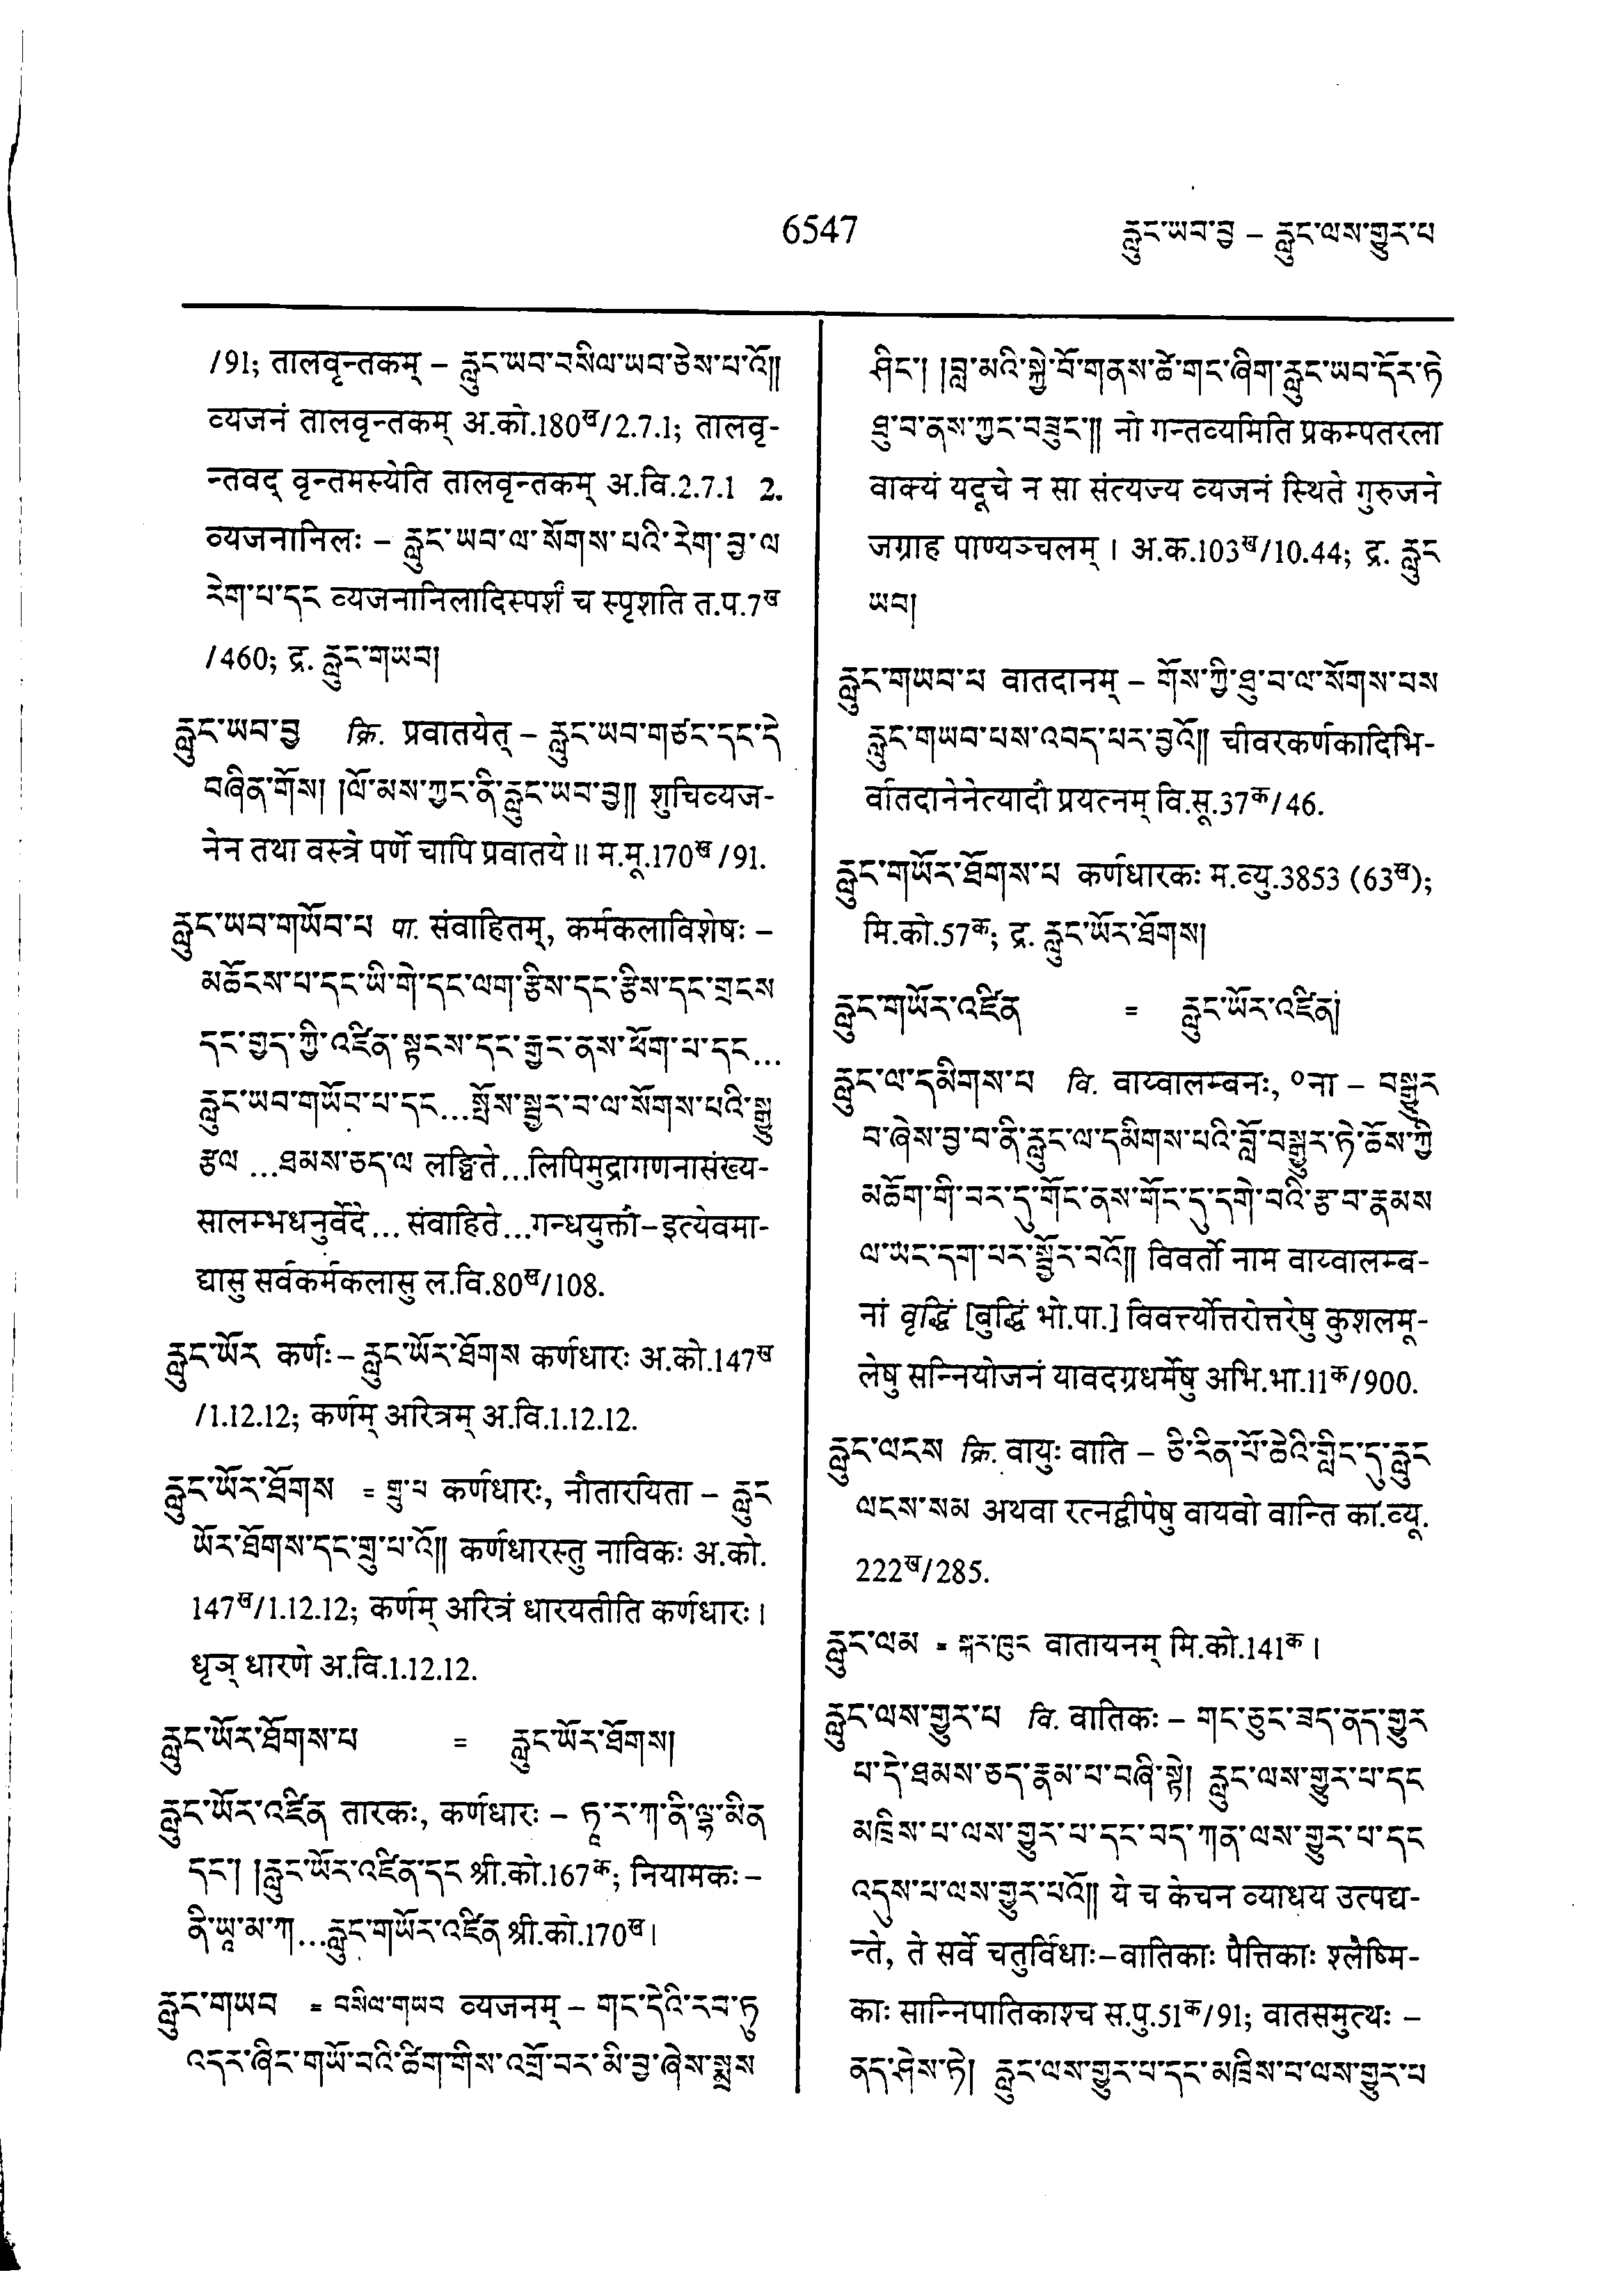 6547
རླུང་ཡབ་བྱ – རླུང་ལས་གྱུར་པ
/91; तालवृन्तकम् – རླུང་ཡབ་བསིལ་ཡབ་ཅེས་པ་འོ༎
व्यजनं तालवृन्तकम् अ.को.180ख/2.7.1; तालवृ-
न्तवद् वृन्तमस्येति तालवृन्तकम् अ.वि.2.7.1 2.
व्यजनानिलः – རླུང་ཡབ་ལ་སོགས་པའི་རེག་བྱ་ལ
རེག་པ་དང व्यजनानिलादिस्पर्शं च स्पृशति त.प.7ख
/460; द्र. རླུང་གཡབ།
རླུང་ཡབ་བྱ क्रि. प्रवातयेत् – རླུང་ཡབ་གཙང་དང་དེ
བཞིན་གོས། །ལོ་མས་ཀྱང་ནི་རླུང་ཡབ་བྱ༎ शुचिव्यज-
नेन तथा वस्त्रे पर्णे चापि प्रवातये॥ म.मू.170ख/91.
རླུང་ཡབ་གཡོབ་པ पा. संवाहितम्, कर्मकलाविशेषः –
མཆོངས་པ་དང་ཡི་གེ་དང་ལག་རྩིས་དང་རྩིས་དང་གྲངས
དང་གྱད་ཀྱི་འཛིན་སྟངས་དང་རྒྱང་ནས་ཕོག་པ་དང...
རླུང་ཡབ་གཡོབ་པ་དང...སྤོས་སྦྱར་བ་ལ་སོགས་པའི་སྒྱུ
རྩལ ...ཐམས་ཅད་ལ लङ्घिते...लिपिमुद्रागणनासंख्य-
सालम्भधनुर्वेदे...संवाहिते...गन्धयुक्तौ–इत्येवमा-
द्यासु सर्वकर्मकलासु ल.वि.80ख/108.
རླུང་ཡོར कर्णः – རླུང་ཡོར་ཐོགས कर्णधारः अ.को.147ख
/1.12.12; कर्णम् अरित्रम् अ.वि.1.12.12.
རླུང་ཡོར་ཐོགས = གྲུ་པ कर्णधारः, नौतारयिता – རླུང
ཡོར་ཐོགས་དང་གྲུ་པ་འོ༎ कर्णधारस्तु नाविकः अ.को.
147ख/1.12.12; कर्णम् अरित्रं धारयतीति कर्णधारः।
धृञ् धारणे अ.वि.1.12.12.
རླུང་ཡོར་ཐོགས་པ = རླུང་ཡོར་ཐོགས།
རླུང་ཡོར་འཛིན तारकः, कर्णधारः – ཏཱ་ར་ཀ་ནི་ལྷ་མིན
དང་། །རླུང་ཡོར་འཛིན་དང श्री.को.167क; नियामकः –
ནི་ཡཱ་མ་ཀ...རླུང་གཡོར་འཛིན श्री.को.170ख।
རླུང་གཡབ = བསིལ་གཡབ व्यजनम् – གང་དེའི་རབ་ཏུ
འདར་ཞིང་གཡོ་བའི་ཚིག་གིས་འགྲོ་བར་མི་བྱ་ཞེས་སྨྲས
ཤིང་། །བླ་མའི་སྐྱེ་བོ་གནས་ཚེ་གང་ཞིག་རླུང་ཡབ་དོར་ཏེ
ཐུ་བ་ནས་ཀྱང་བཟུང་༎ नो गन्तव्यमिति प्रकम्पतरला
वाक्यं यदूचे न सा संत्यज्य व्यजनं स्थिते गुरुजने
जग्राह पाण्यञ्चलम्। अ.क.103ख/10.44; द्र. རླུང
ཡབ།
རླུང་གཡབ་པ वातदानम् – གོས་ཀྱི་ཐུ་བ་ལ་སོགས་པས
རླུང་གཡབ་པས་འབད་པར་བྱའོ༎ चीवरकर्णकादिभि-
र्वातदानेनेत्यादौ प्रयत्नम् वि.सू.37क/46.
རླུང་གཡོར་ཐོགས་པ कर्णधारकः म.व्यु.3853 (63ख);
मि.को.57क; द्र. རླུང་ཡོར་ཐོགས།
རླུང་གཡོར་འཛིན = རླུང་ཡོར་འཛིན།
རླུང་ལ་དམིགས་པ वि. वाय्वालम्बनः, ०ना – བསྒྱུར
བ་ཞེས་བྱ་བ་ནི་རླུང་ལ་དམིགས་པའི་བློ་བསྒྱུར་ཏེ་ཆོས་ཀྱི
མཆོག་གི་བར་དུ་གོང་ནས་གོང་དུ་དགེ་བའི་རྩ་བ་རྣམས
ལ་ཡང་དག་པར་སྦྱོར་བའོ༎ विवर्तो नाम वाय्वालम्ब-
नां वृद्धिं [बुद्धिं भो.पा.] विवर्त्योत्तरोत्तरेषु कुशलमू-
लेषु सन्नियोजनं यावदग्रधर्मेषु अभि.भा.11क/900.
རླུང་ལངས क्रि. वायुः वाति – ཅི་རིན་པོ་ཆེའི་གླིང་དུ་རླུང
ལངས་སམ अथवा रत्नद्वीपेषु वायवो वान्ति का.व्यू.
222ख/285.
རླུང་ལམ = སྐར་ཁུང वातायनम् मि.को.141क।
རླུང་ལས་གྱུར་པ वि. वातिकः – གང་ཅུང་ཟད་ནད་གྱུར
པ་དེ་ཐམས་ཅད་རྣམ་པ་བཞི་སྟེ། རླུང་ལས་གྱུར་པ་དང
མཁྲིས་པ་ལས་གྱུར་པ་དང་བད་ཀན་ལས་གྱུར་པ་དང
འདུས་པ་ལས་གྱུར་པའོ༎ ये च केचन व्याधय उत्पद्य-
न्ते, ते सर्वे चतुर्विधाः–वातिकाः पैत्तिकाः श्लैष्मि-
काः सान्निपातिकाश्च स.पु.51क/91; वातसमुत्थः –
ནད་ཤེས་ཏེ། རླུང་ལས་གྱུར་པ་དང་མཁྲིས་པ་ལས་གྱུར་པ